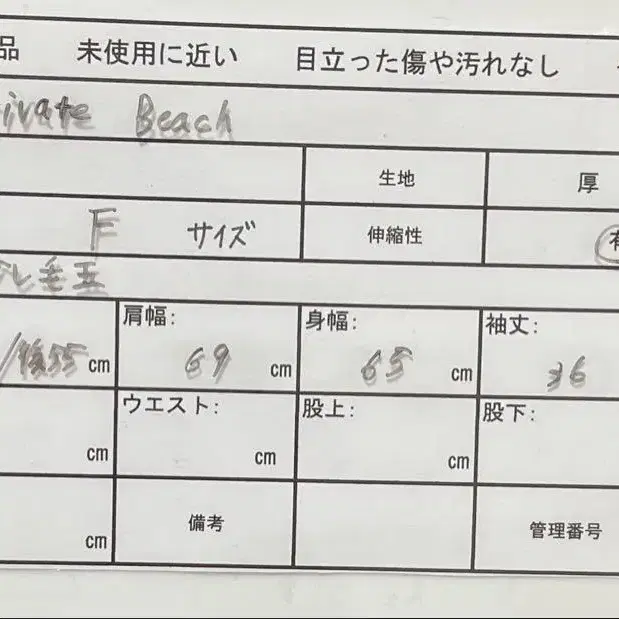 品 未使用に近い 目立った傷や汚れなし
ivate Beach
生地 厚
F サイズ 伸縮性 有
し毛玉
肩幅: 身幅: 袖丈:
/後55 cm 69 cm 65 cm 36
ウエスト: 股上: 股下:
cm cm cm
cm 備考 管理番号